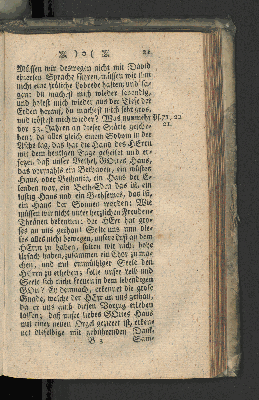 ) o ( 21
Müssen wir deswegen nicht mit David
eben Sprache führen, müssen wir ihm
nicht eine fröliche Lobrede halten, und sa-
gen: du machest mich wieder lebendig,
und holest mich wieder aus der Tiefe der
Erden herauf, du machest mich sehr groß,
und tröstest mich wieder? Was nunmehr Ps. 71, 20
21.
vor 33. Jahren an dieser Stätte gesche-
hen; da alles gleich einem Sodom in der
Asche lag, das hat die Hand des HErrn
mit dem heutigen Tage geheilet und er-
setzet; daß unser Bethel, GOttes Haus,
das vormahls ein Bethaven, ein wüstes
Haus, oder Bethania, ein Haus der E-
lenden war, ein Beth-Eden das ist, ein
lustig Haus und ein Bethsemes, das ist,
ein Haus der Sonnen worden. Wie
müssen wir nicht unter herzlichen Freuden-
Thränen bekennen: der HErr hat gros-
ses an uns gethan! Solte uns nun die-
ses alles nicht bewegen, unsere Lust an dem
HErrn zu haben, solten wir nicht hohe
Ursach haben, zusammen ein Chor zu ma-
chen, und mit einmüthiger Seele den
HErrn zu erheben; solte unser Leib und
Seele sich nicht freuen in dem lebendigen
GOtt? Ey demnach, erkennet die grosse
Gnade, welche der HErr an uns gethan,
da er uns auch diesen Vorzug erleben
lassen; daß unser liebes GOttes Haus
mit einer neuen Orgel gezieret ist, erken-
net dieselbige mit gebührenden Dank.
B 3 Sam-